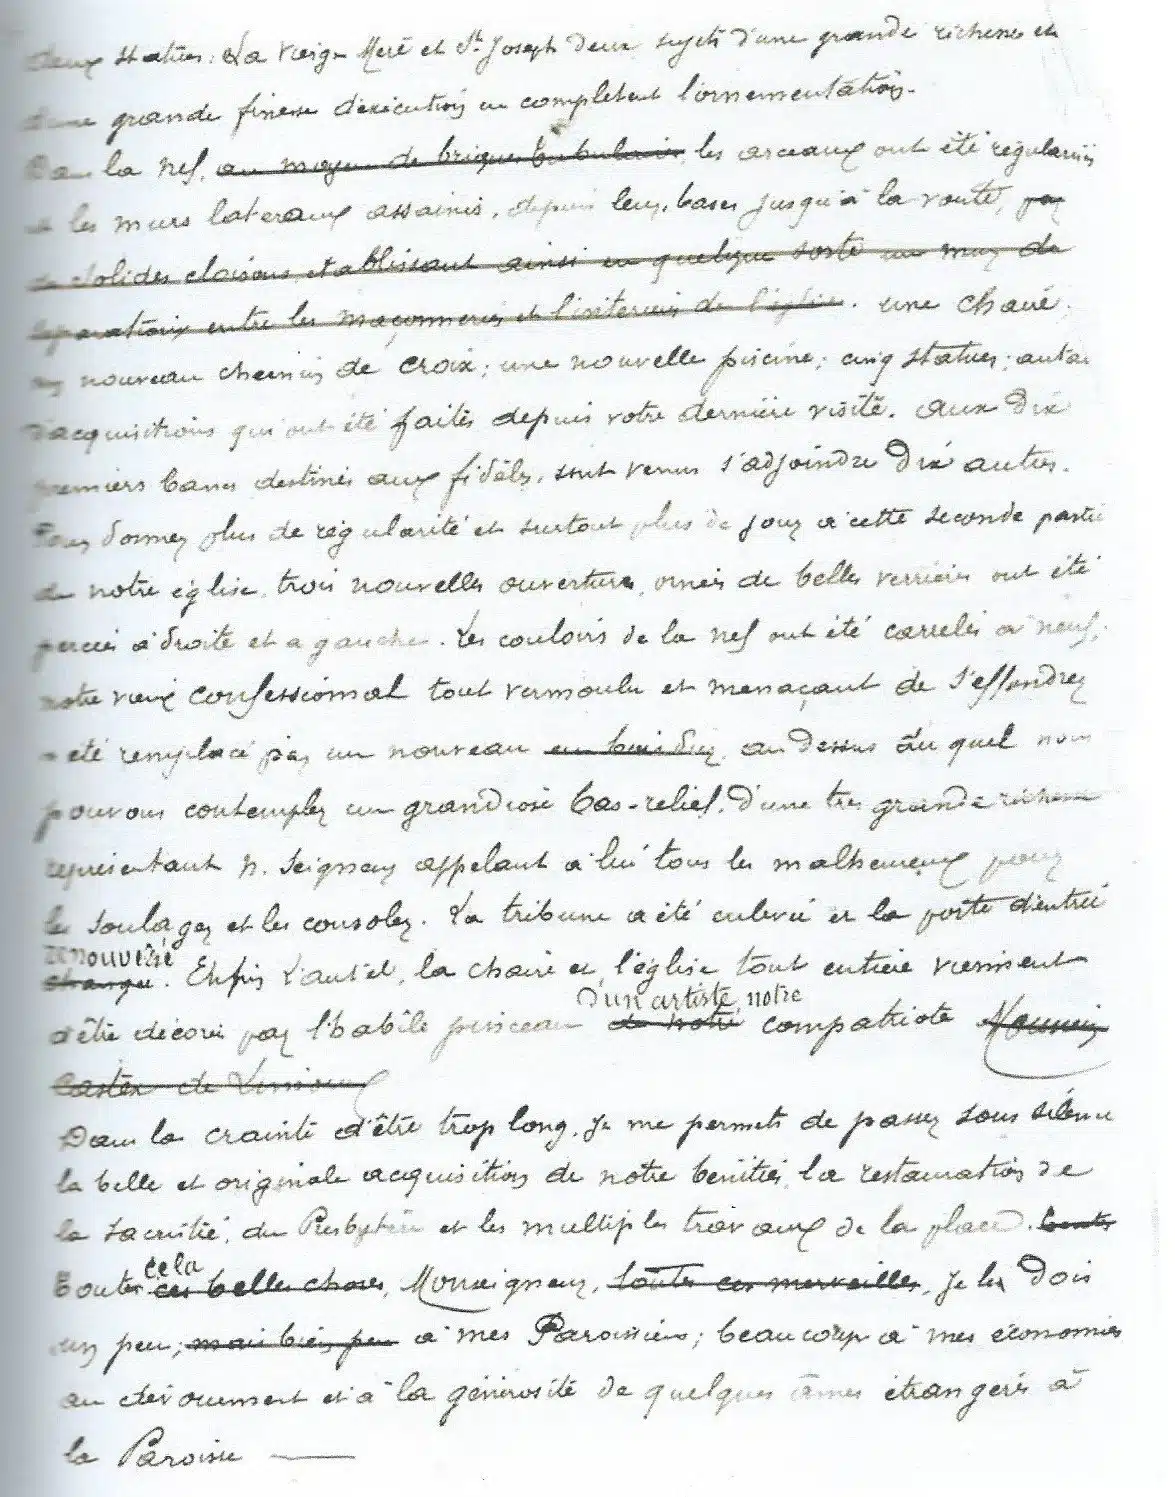 deux statues : La Vierge Mère et St Joseph deux sujets d'une grande richesse et
d'une grande finesse d'exécution en complètent l'ornementation.
Dans la nef, au moyen de briques tubulaires, les arceaux ont été régularisés
et les murs lateraux assainis, depuis leurs bases jusqu'à la voute, par
de solides cloisons, etablissant ainsi en quelque sorte un mur de
séparation entre les maçonneries et l'intérieur de l'église. une chaire,
un nouveau chemin de croix ; une nouvelle piscine ; cinq statues ; autant
d'acquisitions qui ont été faites depuis votre dernière visite. aux dix
premiers bancs destinés aux fidèles, sont venus s'adjoindre dix autres.
Pour donner plus de régularité et surtout plus de jour à cette seconde partie
de notre église, trois nouvelles ouvertures, ornées de belles verrières ont été
percées à droite et a gauche. Les couloirs de la nef ont été carrelés à neuf ;
notre vieux confessionnal tout vermoulu et menaçant de s'effondrer
a été remplacé par un nouveau en bois dur, au dessus du quel nous
pouvons contempler un grandiose bas-relief, d'une très grande richesse
représentant N. Seigneur appelant à lui tous les malheureux pour
les soulager et les consoler. La tribune a été enlevée et la porte d'entrée
renouvelée
changée. Enfin l'autel, la chaire et l'église tout entière viennent
d'un artiste, notre
d'être décorés par l'habile pinceau de notre compatriote Monsieur
Castex de
Dans la crainte d'être trop long, je me permets de passer sous silence
la belle et originale acquisition de notre bénitier, la restauration de
la sacristie, du Presbytère et les multiples travaux de la place. toutes
cela
Toutes ces belles choses, Monseigneur, toutes ces merveilles, je les dois
un peu ; mais bien peu à mes Paroissiens ; beaucoup à mes économies
au dévouement et à la générosité de quelques âmes étrangères à
la Paroisse